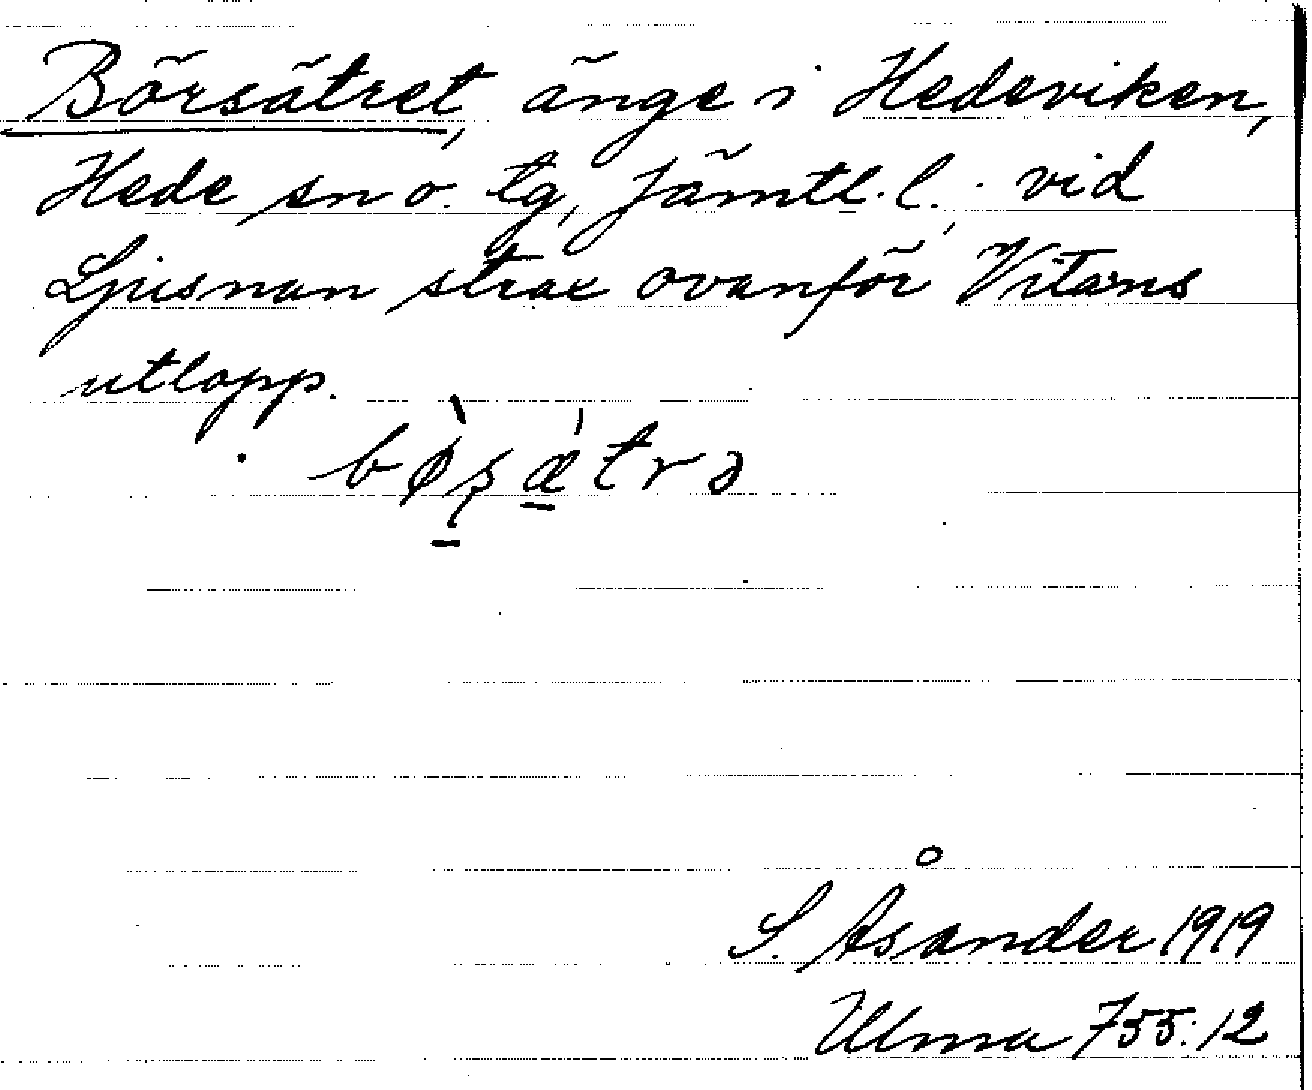 Börsätret, änge i Hedeviken,
Hede sn o. tg, Jämtl. l. vid
Ljusnan strax ovanför Vitåns
utlopp.
bø̀ʂæ̀trə
S. Åsander 1919
Ulma 755:12